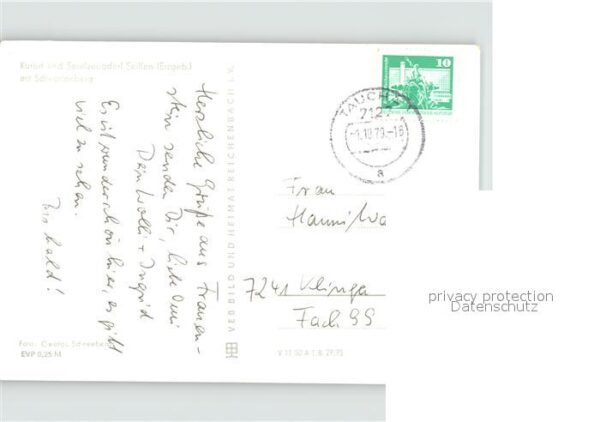 Kurort und Spielzeugdorf Seiffen (Erzgeb.)
mit Schwartenberg
Herzliche Grüße aus Frauen-
stein senden Dir, liebe Omi
Dein Wolli + Ingrid
Es ist wunderschön hier, es gibt
viel zu sehen.
Bis bald!
Foto: Georgi, Schneeberg
EVP 0,25 M
VEB BILD UND HEIMAT REICHENBACH I. V.
V 11 50 A 1
10
TAUCHA
7127
a
Frau
Hanni
7241 Klinga
Fach 99
privacy protection
Datenschutz